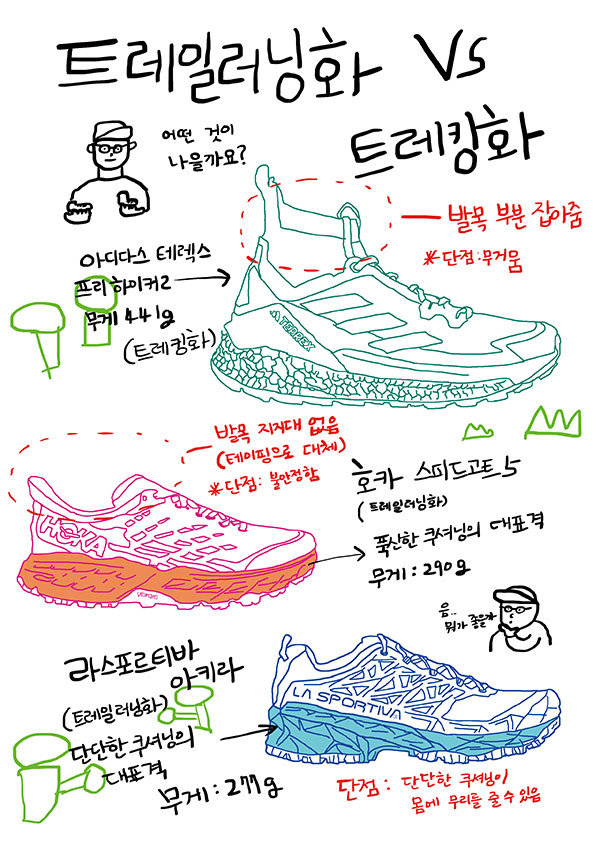 트레일러닝화 Vs
트레킹화
어떤 것이
나을까요?
발목 부분 잡아줌
*단점:무거움
아디다스 테렉스
프리하이커2
무게 441g
(트레킹화)
TERREX
발목 지지대 없음
(테이핑으로 대체)
*단점: 불안정함
호카 스피드고트5
(트레일러닝화)
푹신한 쿠셔닝의 대표격
무게: 290g
HOKA
vibram
음..
뭐가 좋을까
라스포르티바
아키라
(트레일러닝화)
단단한 쿠셔닝의
대표격
무게: 277g
LA SPORTIVA
단점: 단단한 쿠셔닝이
몸에 무리를 줄 수 있음